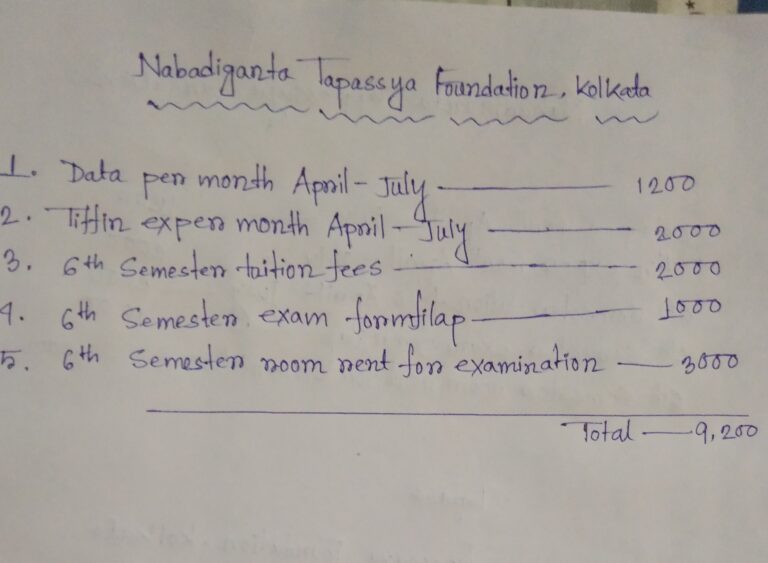 Nabadiganta Tapassya Foundation, Kolkata
1. Data per month April - July - 1200
2. Tiffin exper month April - July - 2000
3. 6th Semester tuition fees - 2000
4. 6th Semester exam formfilap - 1000
5. 6th Semester room rent for examination - 3000
Total - 9,200